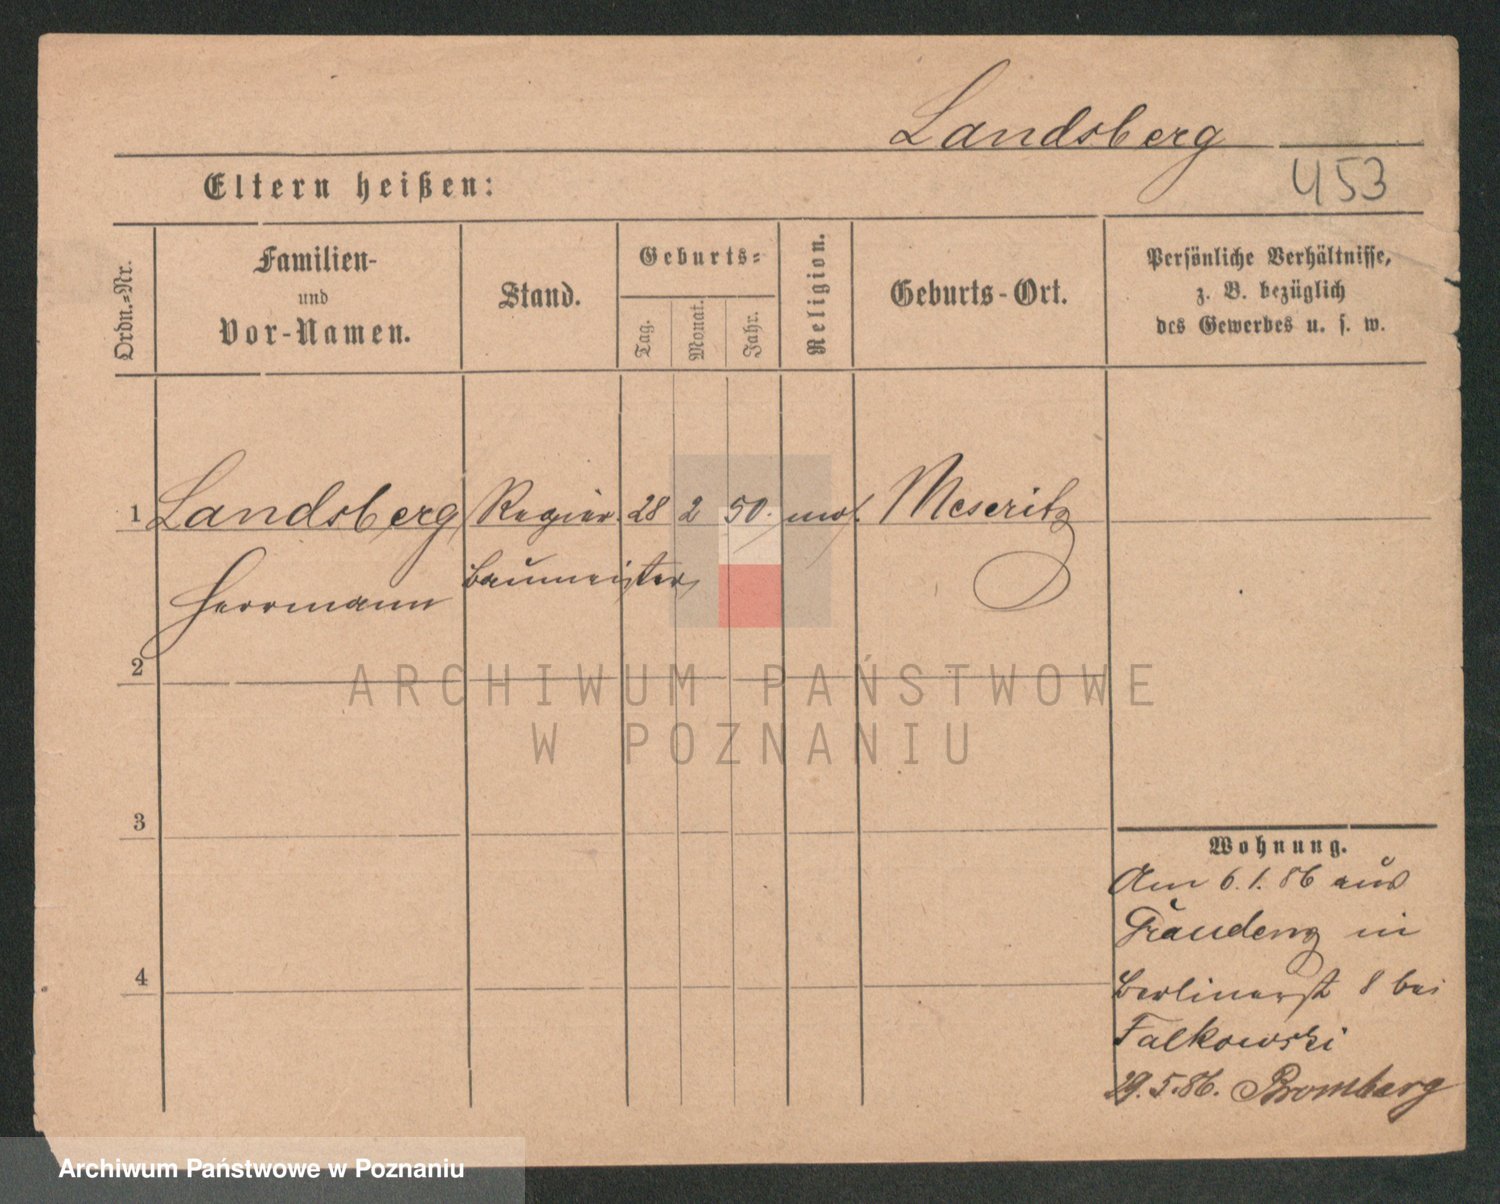 Landsberg
453
Eltern heißen:
Ordn.=Nr.
Familien-
und
Vor-Namen.
Stand.
Geburts=
Tag.
Monat.
Jahr.
Religion.
Geburts-Ort.
Persönliche Verhältnisse,
z. B. bezüglich
des Gewerbes u. s. w.
1 Landsberg Regier. 28 2 50. mos. Meseritz
Herrmann baumeister
2
3
4
Wohnung.
Am 6.1.86 aus
Graudenz in
Berlinerst 8 bei
Falkowski
29.5.86. Bromberg
ARCHIWUM PAŃSTWOWE
W POZNANIU
Archiwum Państwowe w Poznaniu